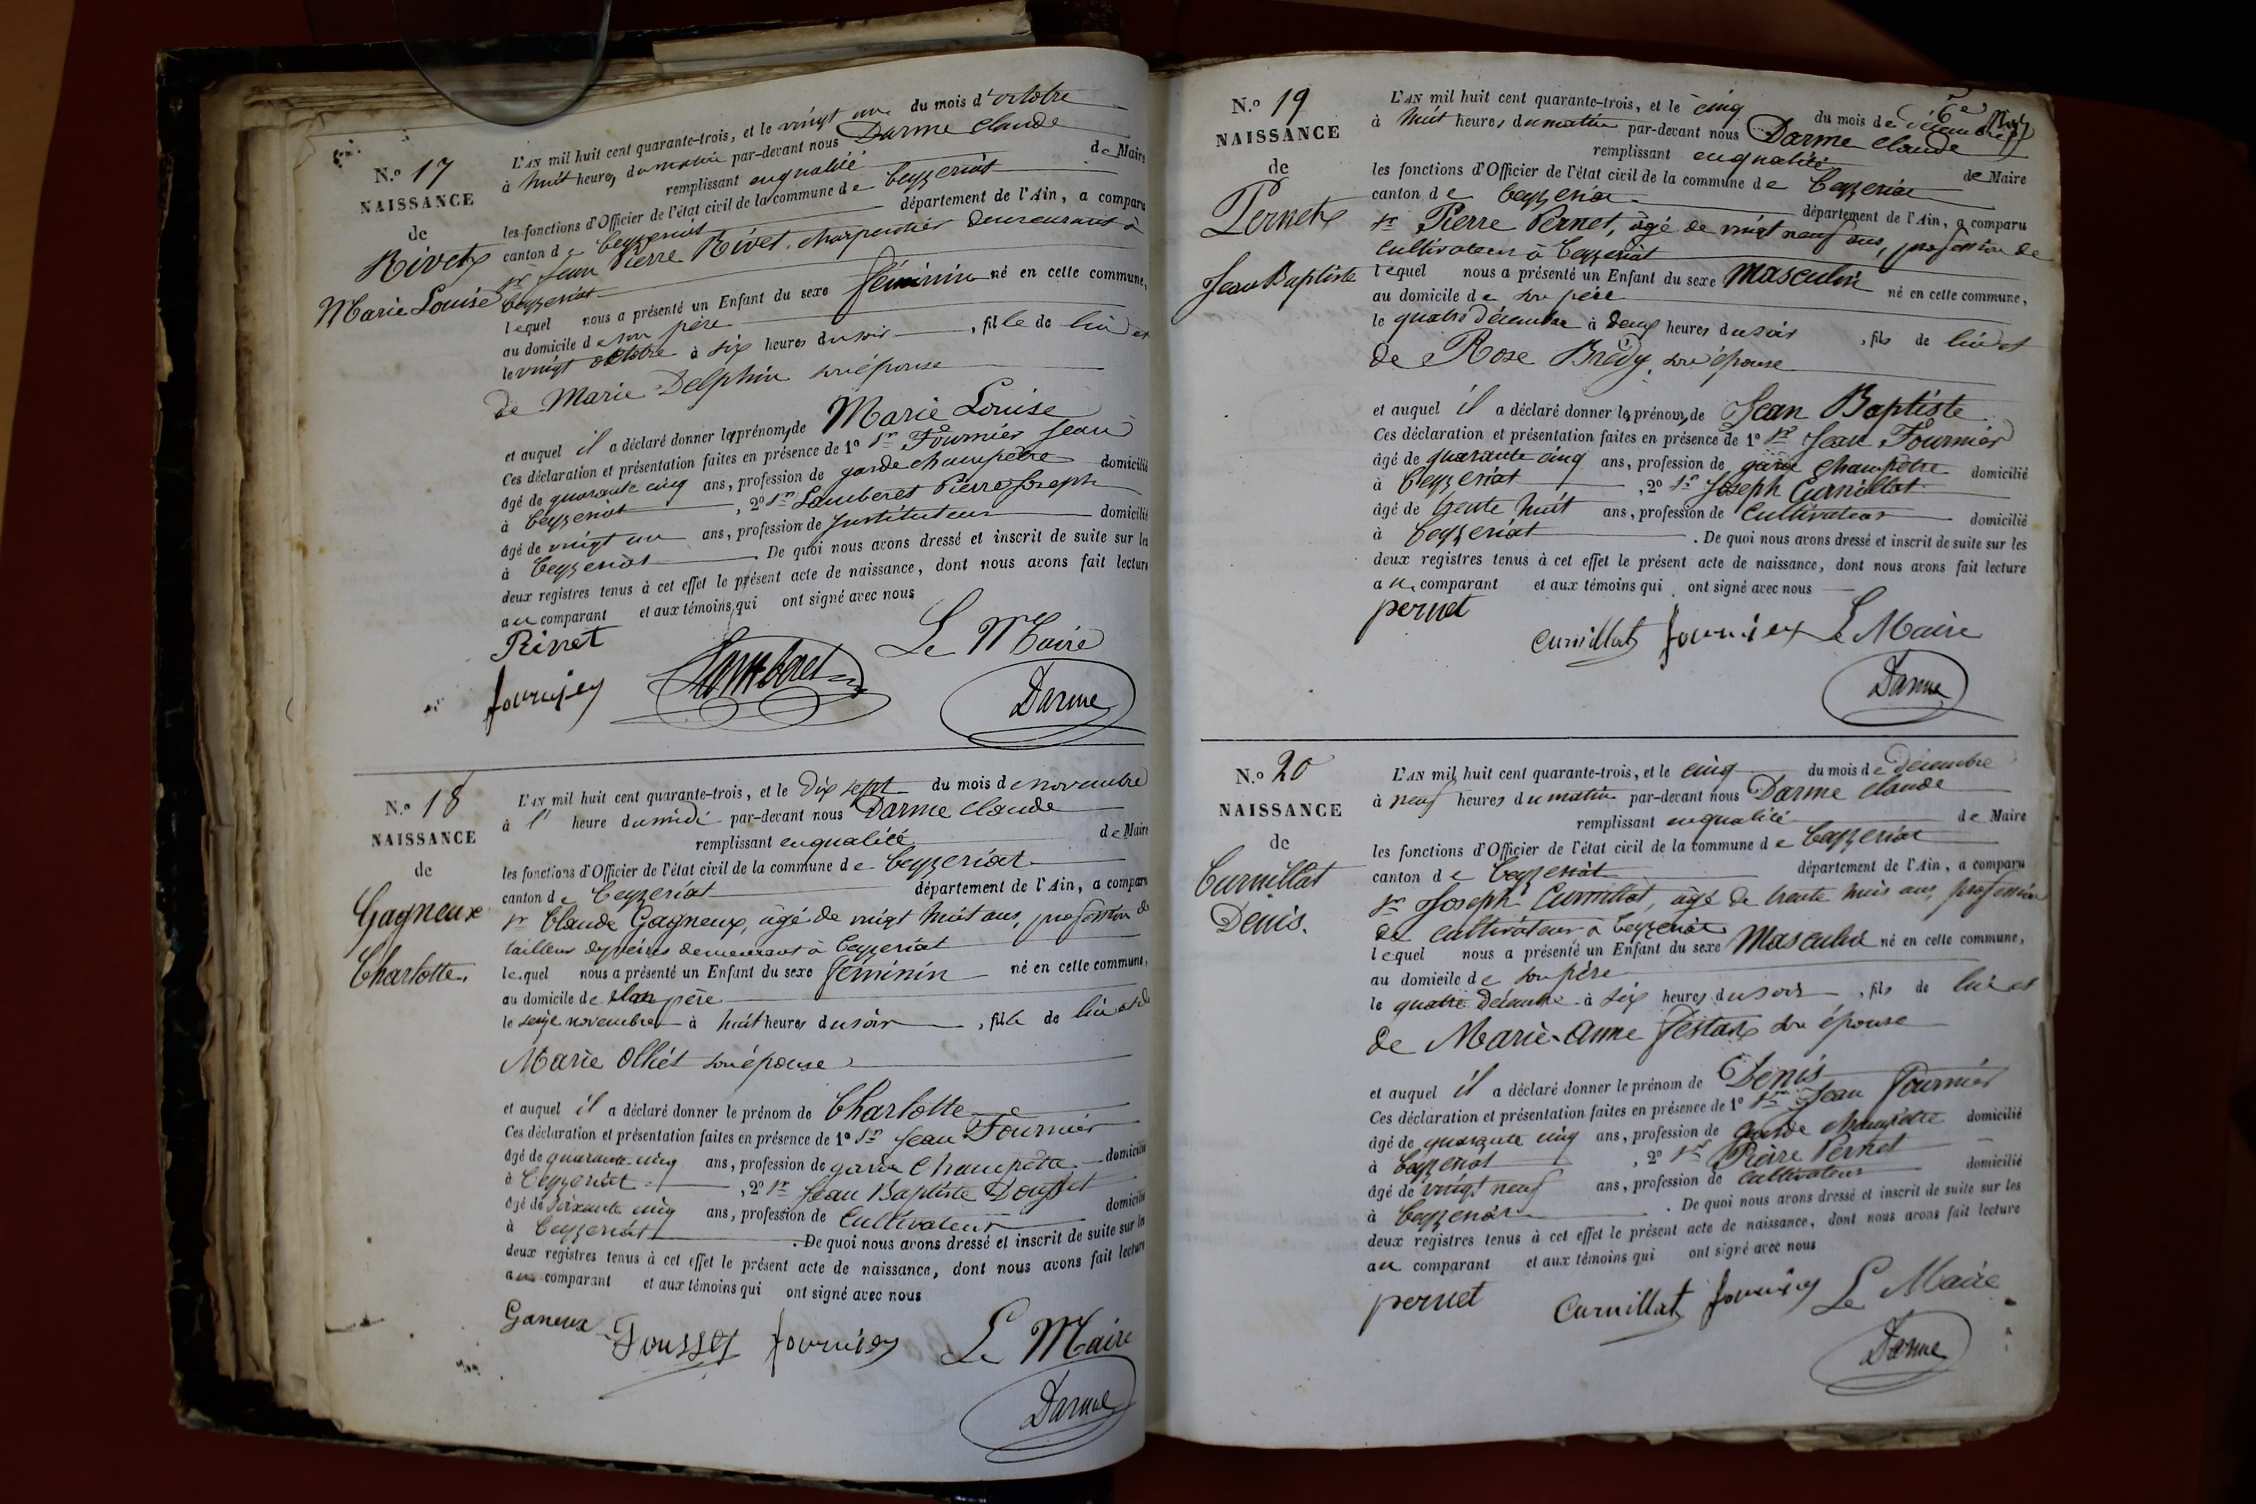 N.o 17
NAISSANCE
de
Rivet
Marie Louise
L'AN mil huit cent quarante-trois, et le vingt un du mois d'octobre
à huit heures du matin par-devant nous Darme Claude
remplissant en qualité de Maire
les fonctions d'Officier de l'état civil de la commune de Ceyzeriat
canton de Ceyzeriat département de l'Ain, a comparu
sr Jean Pierre Rivet, charpentier demeurant à
Ceyzeriat
lequel nous a présenté un Enfant du sexe féminin né en cette commune,
au domicile de son père
le vingt octobre à six heures du soir, fille de lui et
de Marie Delphin son épouse
et auquel il a déclaré donner les prénoms de Marie Louise
Ces déclaration et présentation faites en présence de 1o sr Fournier Jean
âgé de quarante cinq ans, profession de garde champêtre domicilié
à Ceyzeriat, 2o sr Lamberet Pierre Joseph
âgé de vingt un ans, profession de Instituteur domicilié
à Ceyzeriat. De quoi nous avons dressé et inscrit de suite sur les
deux registres tenus à cet effet le présent acte de naissance, dont nous avons fait lecture
au comparant et aux témoins, qui ont signé avec nous
Rivet
Le Maire
fournier Lamberet
Darme
N.o 18
NAISSANCE
de
Gagneux
Charlotte.
L'AN mil huit cent quarante-trois, et le dix sept du mois de novembre
à 1' heure du midi par-devant nous Darme Claude
remplissant en qualité de Maire
les fonctions d'Officier de l'état civil de la commune de Ceyzeriat
canton de Ceyzeriat département de l'Ain, a comparu
sr Claude Gagneux, âgé de vingt huit ans, profession de
tailleur de pierres demeurant à Ceyzeriat
lequel nous a présenté un Enfant du sexe féminin né en cette commune,
au domicile de son père
le seize novembre à huit heures du soir, fille de lui et de
Marie Olliet son épouse
et auquel il a déclaré donner le prénom de Charlotte
Ces déclaration et présentation faites en présence de 1o sr Jean Fournier
âgé de quarante cinq ans, profession de garde Champêtre domicilié
à Ceyzeriat, 2o sr Jean Baptiste Dousset
âgé de soixante cinq ans, profession de Cultivateur domicilié
à Ceyzeriat. De quoi nous avons dressé et inscrit de suite sur les
deux registres tenus à cet effet le présent acte de naissance, dont nous avons fait lecture
au comparant et aux témoins qui ont signé avec nous
Ganeux Dousset fournier Le Maire
Darme
6e
N.o 19
NAISSANCE
de
Pernet
Jean Baptiste
L'AN mil huit cent quarante-trois, et le cinq du mois de décembre
à huit heures du matin par-devant nous Darme Claude
remplissant en qualité de Maire
les fonctions d'Officier de l'état civil de la commune de Ceyzeriat
canton de Ceyzeriat département de l'Ain, a comparu
sr Pierre Pernet, âgé de vingt neuf ans, profession de
cultivateur à Ceyzeriat
lequel nous a présenté un Enfant du sexe Masculin né en cette commune,
au domicile de son père
le quatre décembre à deux heures du soir, fils de lui et
de Rose Brédy, son épouse
et auquel il a déclaré donner les prénoms de Jean Baptiste
Ces déclaration et présentation faites en présence de 1o sr Jean Fournier
âgé de quarante cinq ans, profession de garde Champêtre domicilié
à Ceyzeriat, 2o sr Joseph Curnillat
âgé de trente huit ans, profession de Cultivateur domicilié
à Ceyzeriat. De quoi nous avons dressé et inscrit de suite sur les
deux registres tenus à cet effet le présent acte de naissance, dont nous avons fait lecture
au comparant et aux témoins qui ont signé avec nous
pernet
curnillat fournier Le Maire
Darme
N.o 20
NAISSANCE
de
Curnillat
Denis.
L'AN mil huit cent quarante-trois, et le cinq du mois de décembre
à neuf heures du matin par-devant nous Darme Claude
remplissant en qualité de Maire
les fonctions d'Officier de l'état civil de la commune de Ceyzeriat
canton de Ceyzeriat département de l'Ain, a comparu
sr Joseph Curnillat, âgé de trente huit ans, profession
de cultivateur à Ceyzeriat
lequel nous a présenté un Enfant du sexe Masculin né en cette commune,
au domicile de son père
le quatre décembre à six heures du soir, fils de lui et
de Marie-Anne Pestax son épouse
et auquel il a déclaré donner le prénom de Denis
Ces déclaration et présentation faites en présence de 1o sr Jean Fournier
âgé de quarante cinq ans, profession de garde champêtre domicilié
à Ceyzeriat, 2o sr Pierre Pernet
âgé de vingt neuf ans, profession de cultivateur domicilié
à Ceyzeriat. De quoi nous avons dressé et inscrit de suite sur les
deux registres tenus à cet effet le présent acte de naissance, dont nous avons fait lecture
au comparant et aux témoins qui ont signé avec nous
pernet Curnillat fournier Le Maire
Darme